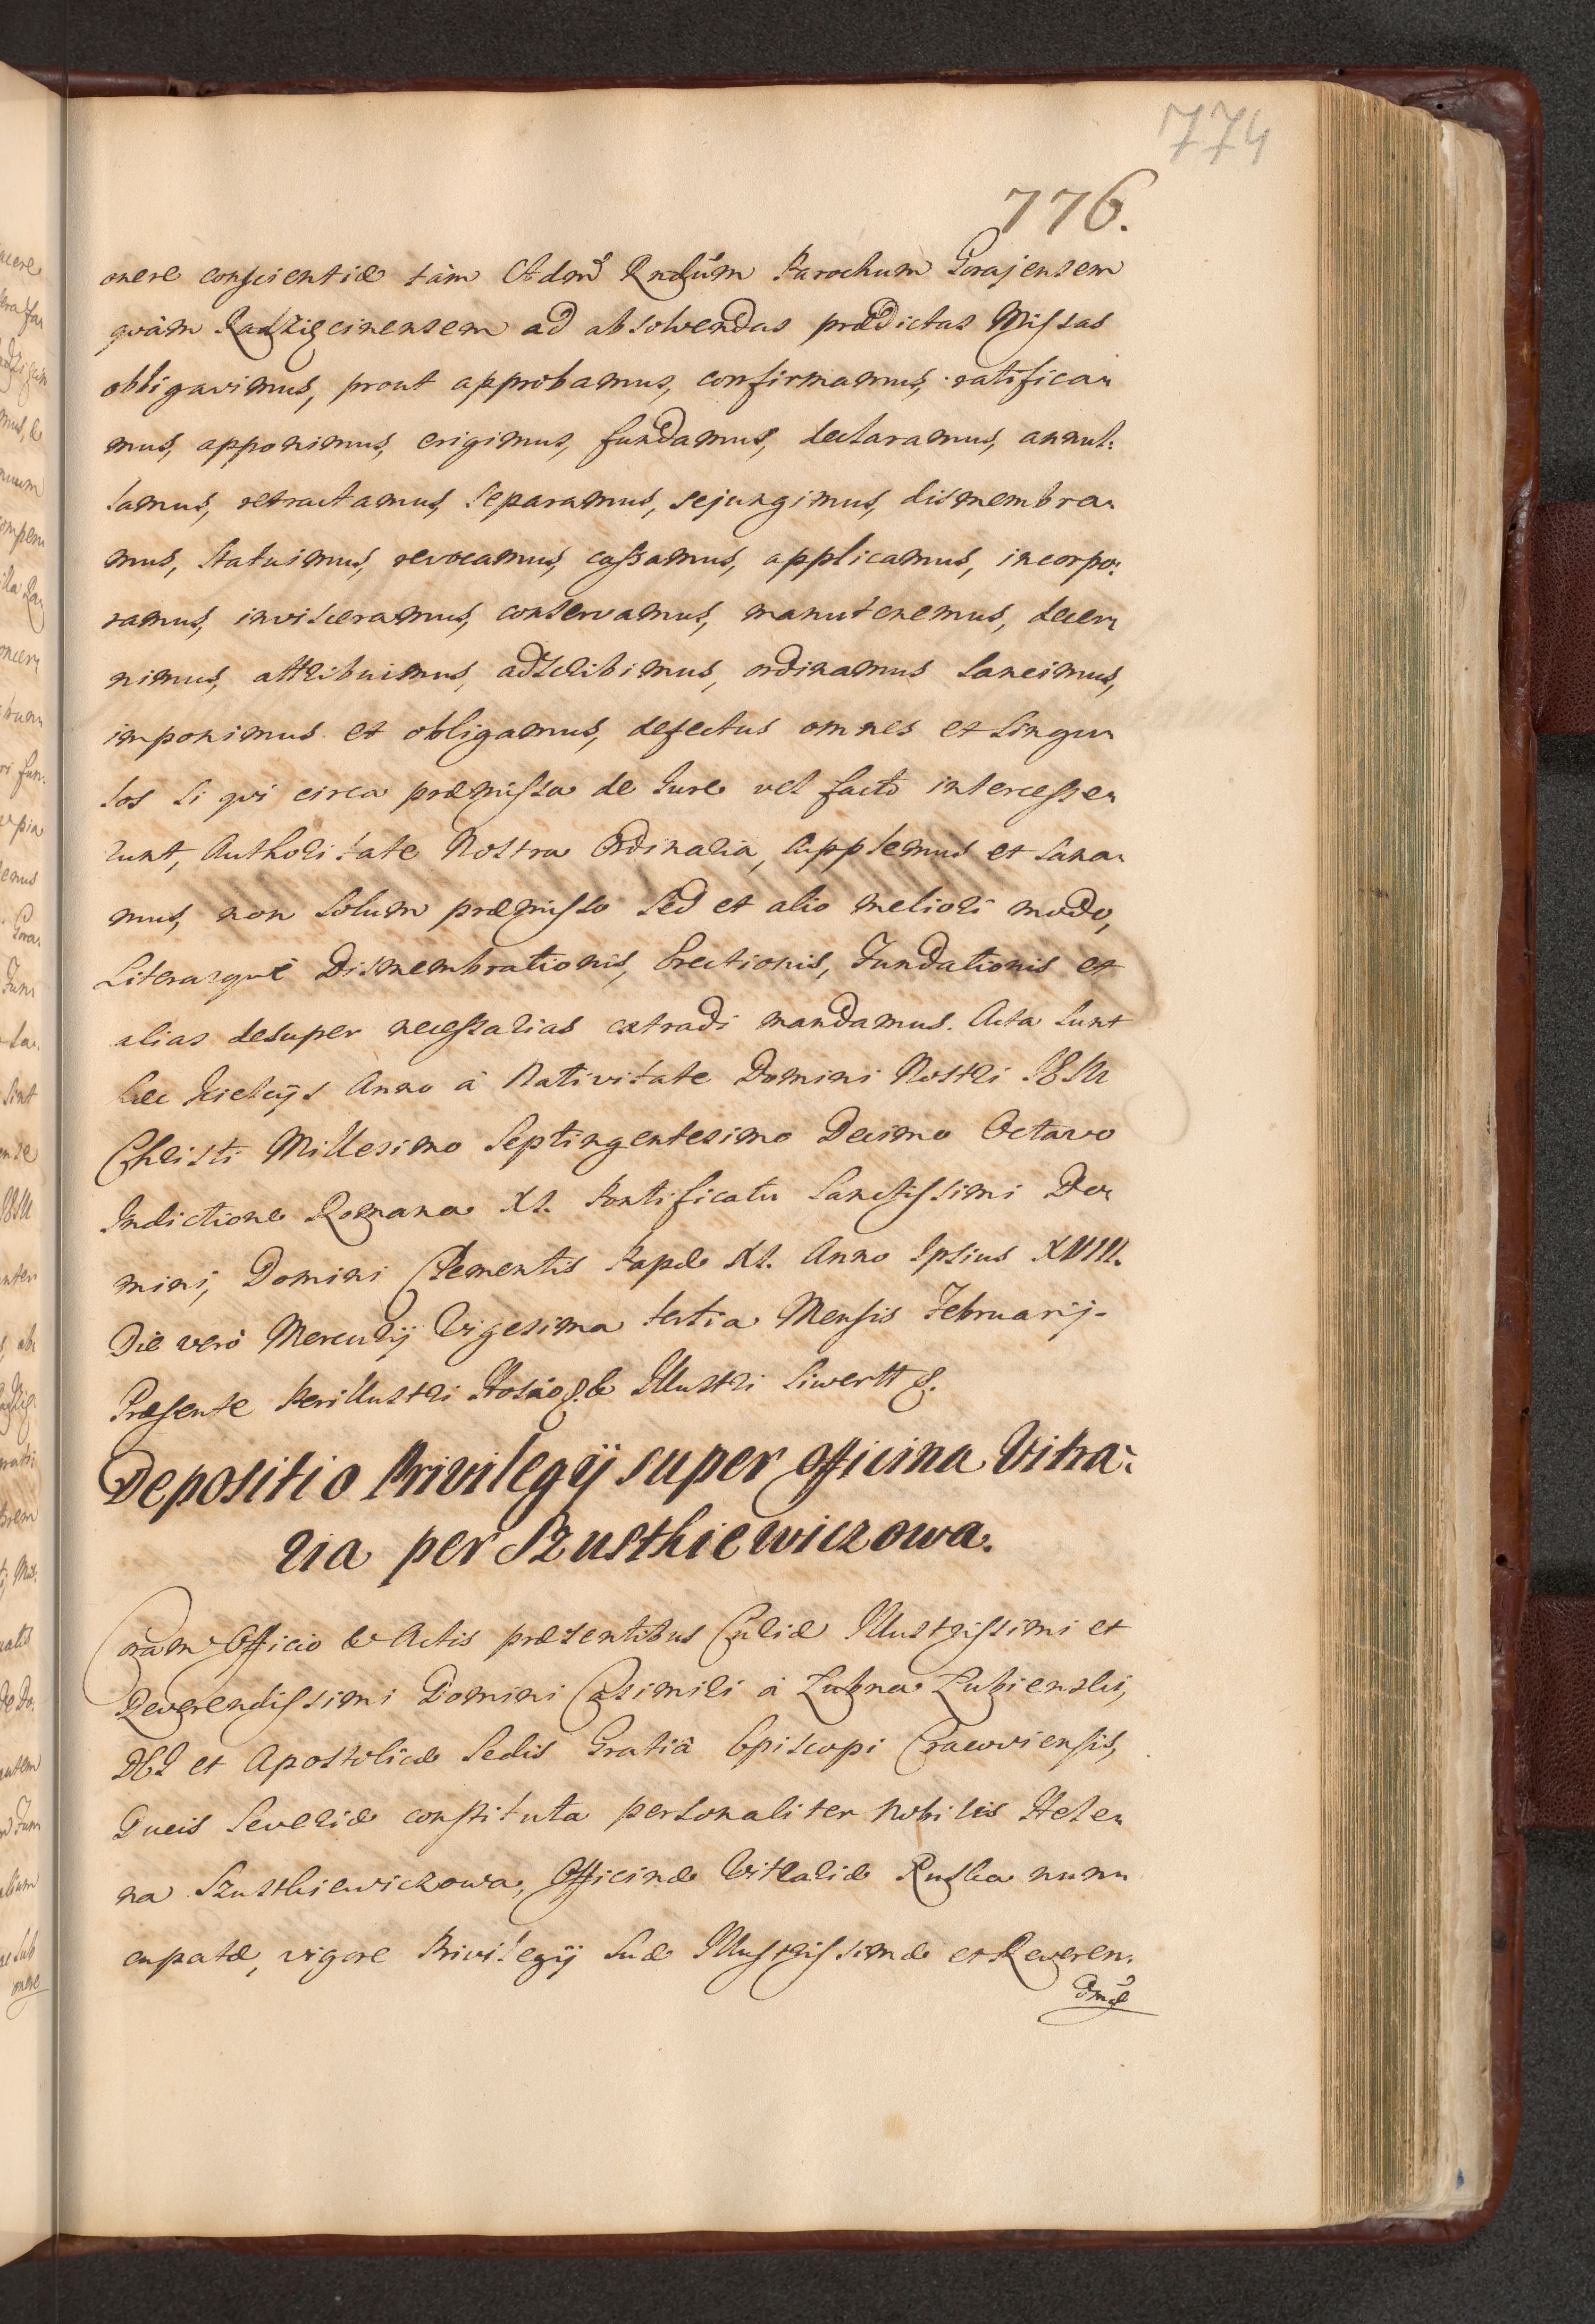 774
776.
onere conscientiæ tàm Admd Rndūm Parochum Gorajensem
quàm Radzięcinensem ad absolvendas prædictas Missas
obligavimus, prout approbamus, confirmamus, ratifica-
mus, apponimus, erigimus, fundamus, declaramus, annul-
lamus, retractamus, separamus, sejungimus, dismembra-
mus, statuimus, revocamus, cassamus, applicamus, incorpo-
ramus, invisceramus, conservamus, manutenemus, decer-
nimus, attribuimus, adscribimus, ordinamus sancimus,
imponimus et obligamus, defectus omnes et singu-
los si qui circa præmissa de Jure vel facto intercesse-
runt, Authoritate Nostra Ordinaria, supplemus et sana-
mus, non solum præmisso sed et alio meliori modo,
Literasque Dismembrationis, Erectionis, Fundationis et
alias desuper necessarias extradi mandamus. Acta sunt
hæc Kielcijs Anno à Nativitate Domini Nostri JESU
Christi Millesimo Septingentesimo Decimo Octavo
Indictione Romana XI. Pontificatu Sanctissimi Do-
mini, Domini Clementis Papæ XI. Anno Ipsius XVIII.
Die verò Mercurij Vigesima tertia Mensis Februarij.
Præsente Perillustri Illustri Siwertt
Depositio Privilegij super officina Vitra-
ria per Szusthiewiczowa.
Coram Officio & Actis præsentibus Curiæ Illustrissimi et
Reverendissimi Domini Casimiri à Łubna Łubienski,
DEI et Apostolicæ Sedis Gratiâ Episcopi Cracoviensis,
Ducis Severiæ constituta personaliter Nobilis Hele-
na Szusthiewiczowa, Officinæ Vitrariæ Ruska nun-
cupatæ, vigore Privilegij Suæ Illustrissimæ et Reveren-
dmæ